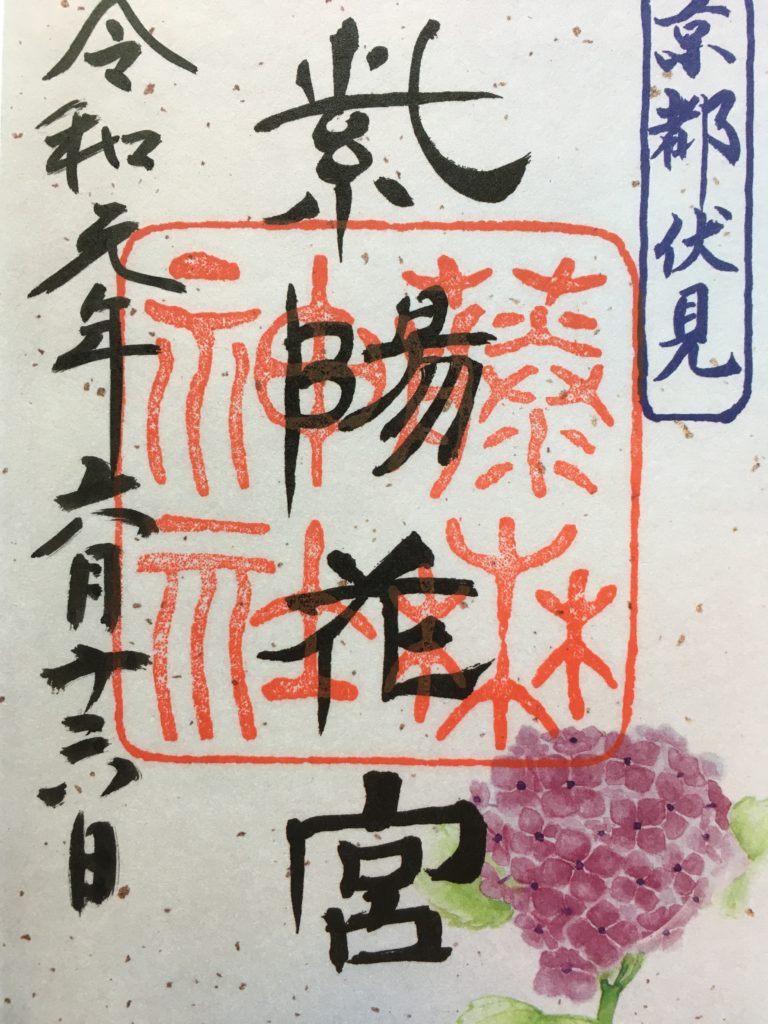 京都伏見
紫陽花宮
藤森
神社
令和元年六月十六日